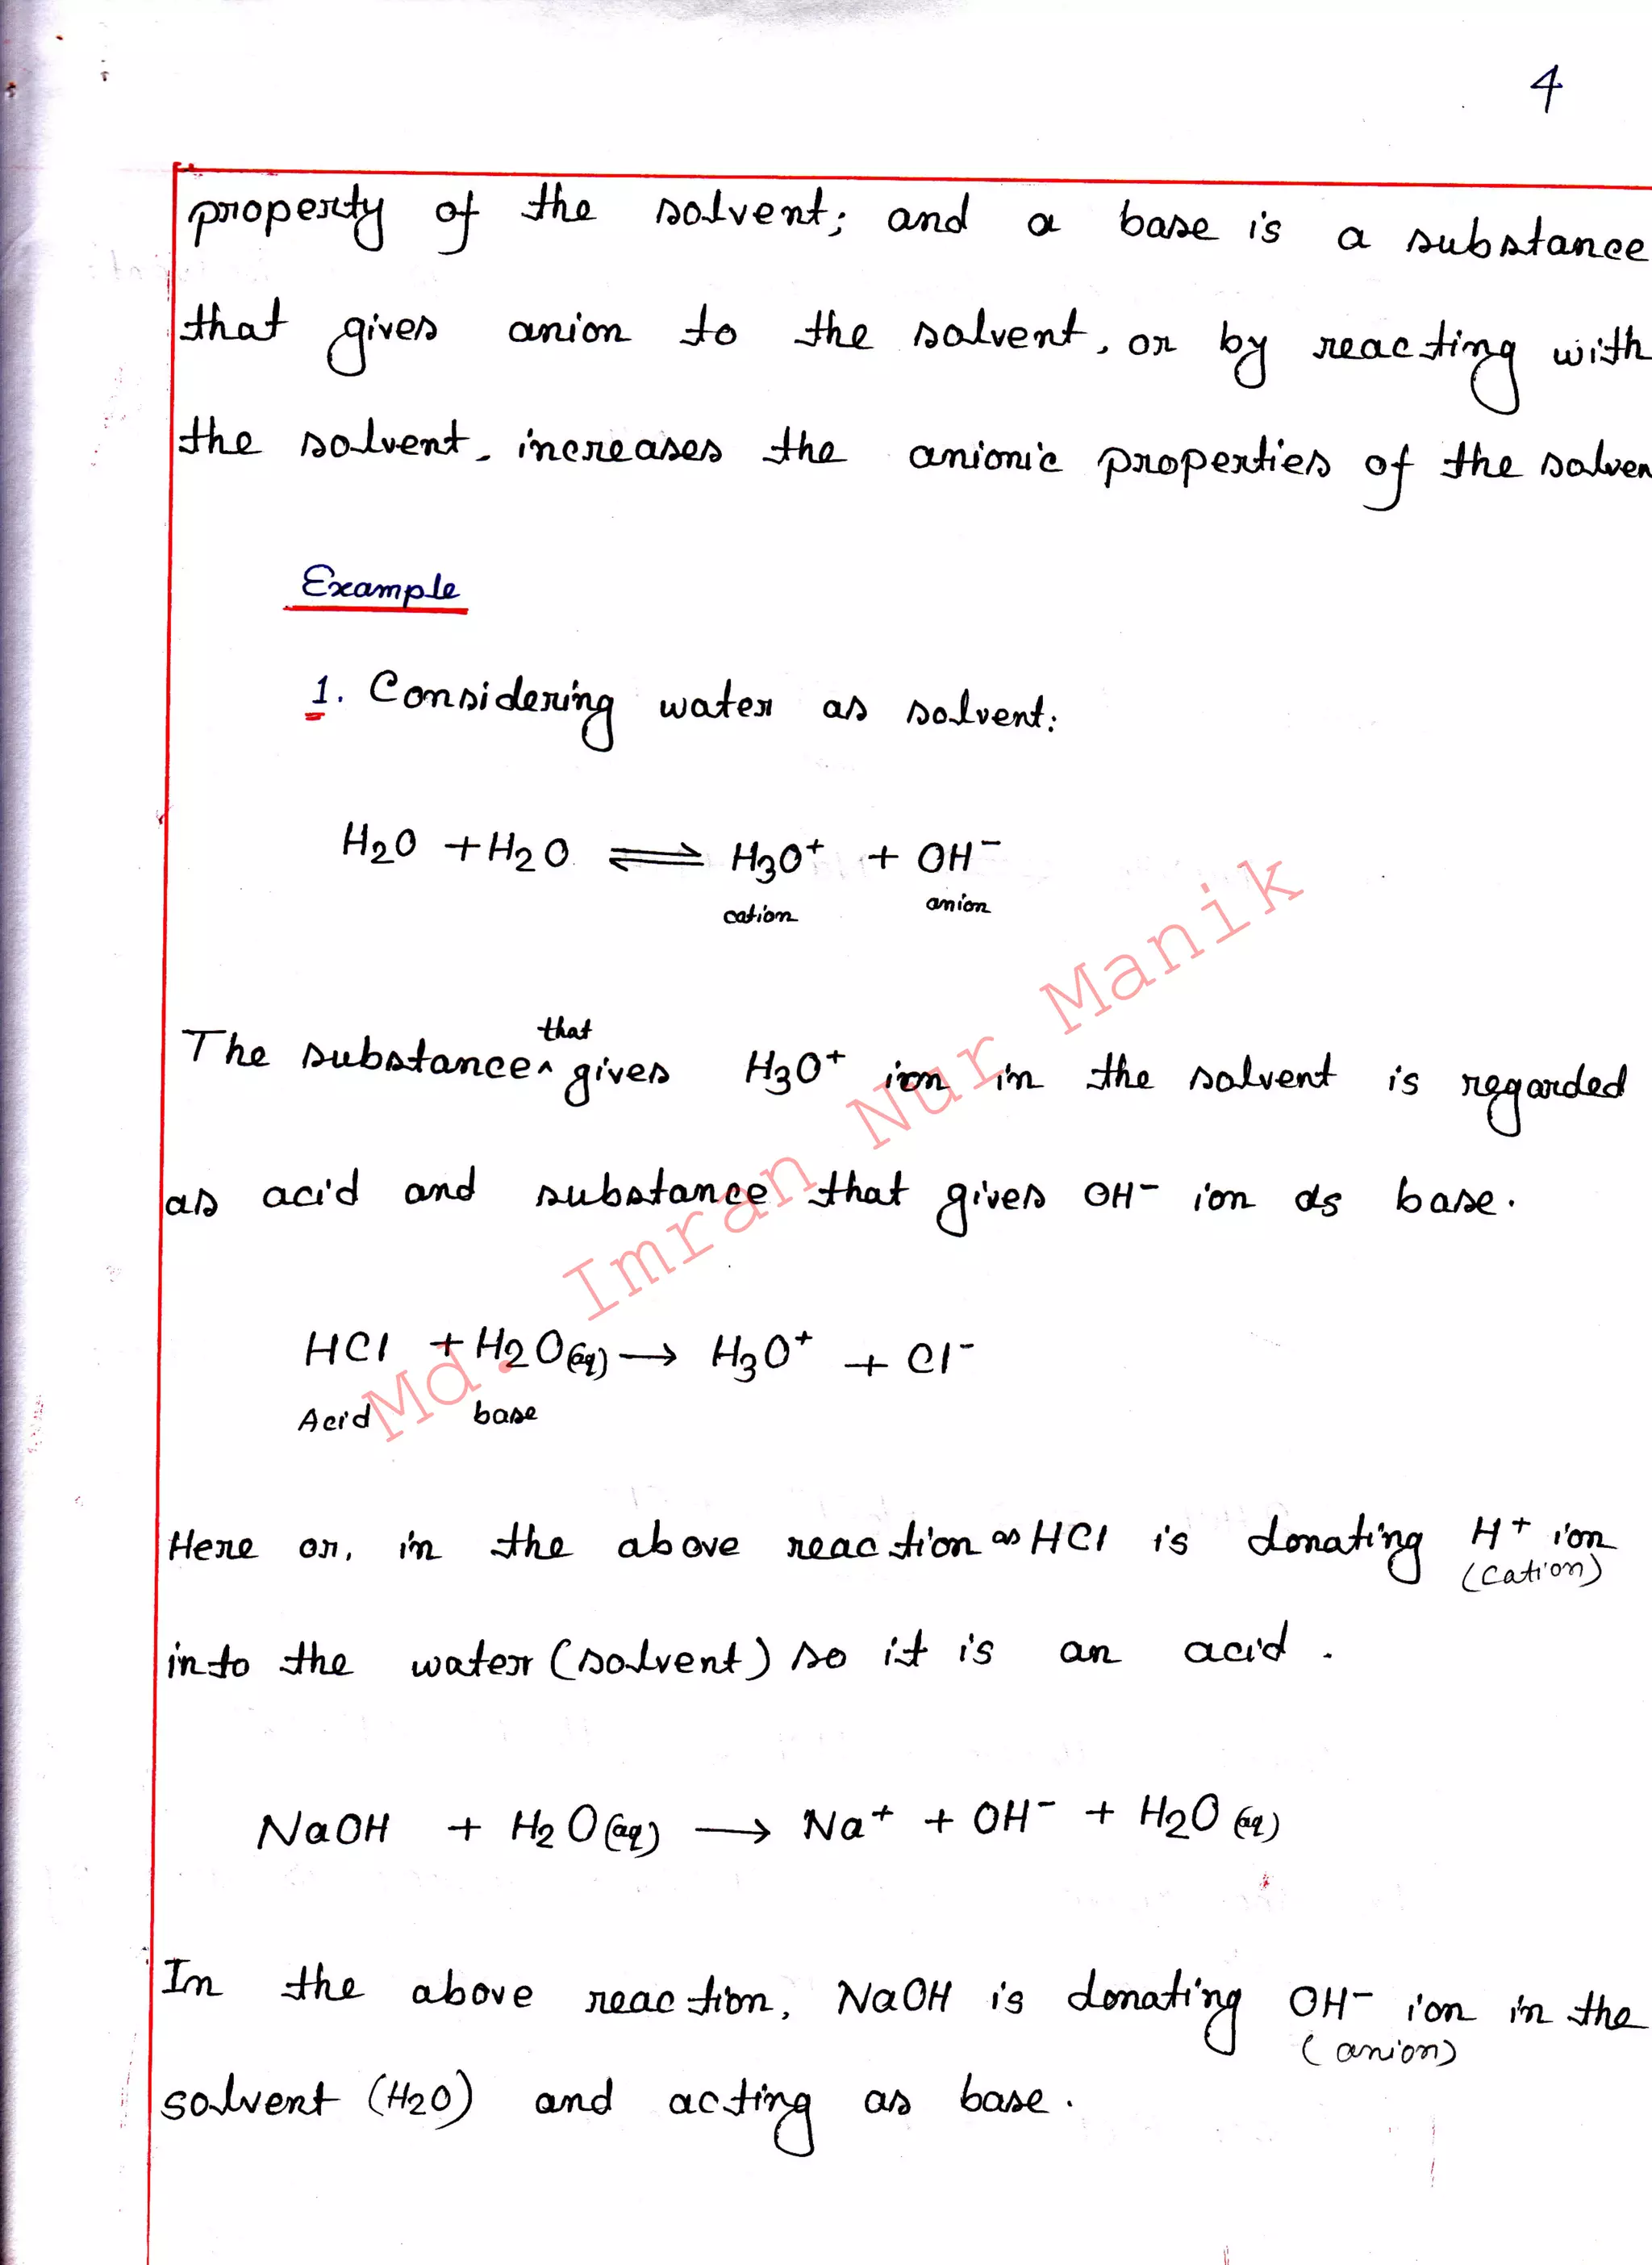 4
property of the solvent; and a base is a substance
that gives anion to the solvent, or by reacting with
the solvent, increases the anionic properties of the solven
Example
1. Considering water as solvent:
H2O + H2O ⇌ H3O+ + OH-
cation anion
that
The substance ^ gives H3O+ ion in the solvent is regarded
as acid and substance that gives OH- ion as base.
HCl + H2O(aq) → H3O+ + Cl-
Acid base
Here or, in the above reaction as HCl is donating H+ ion
(Cation)
into the water (solvent) so it is an acid.
NaOH + H2O(aq) → Na+ + OH- + H2O(aq)
In the above reaction, NaOH is donating OH- ion in the
(anion)
solvent (H2O) and acting as base.
Md. Imran Nur Manik